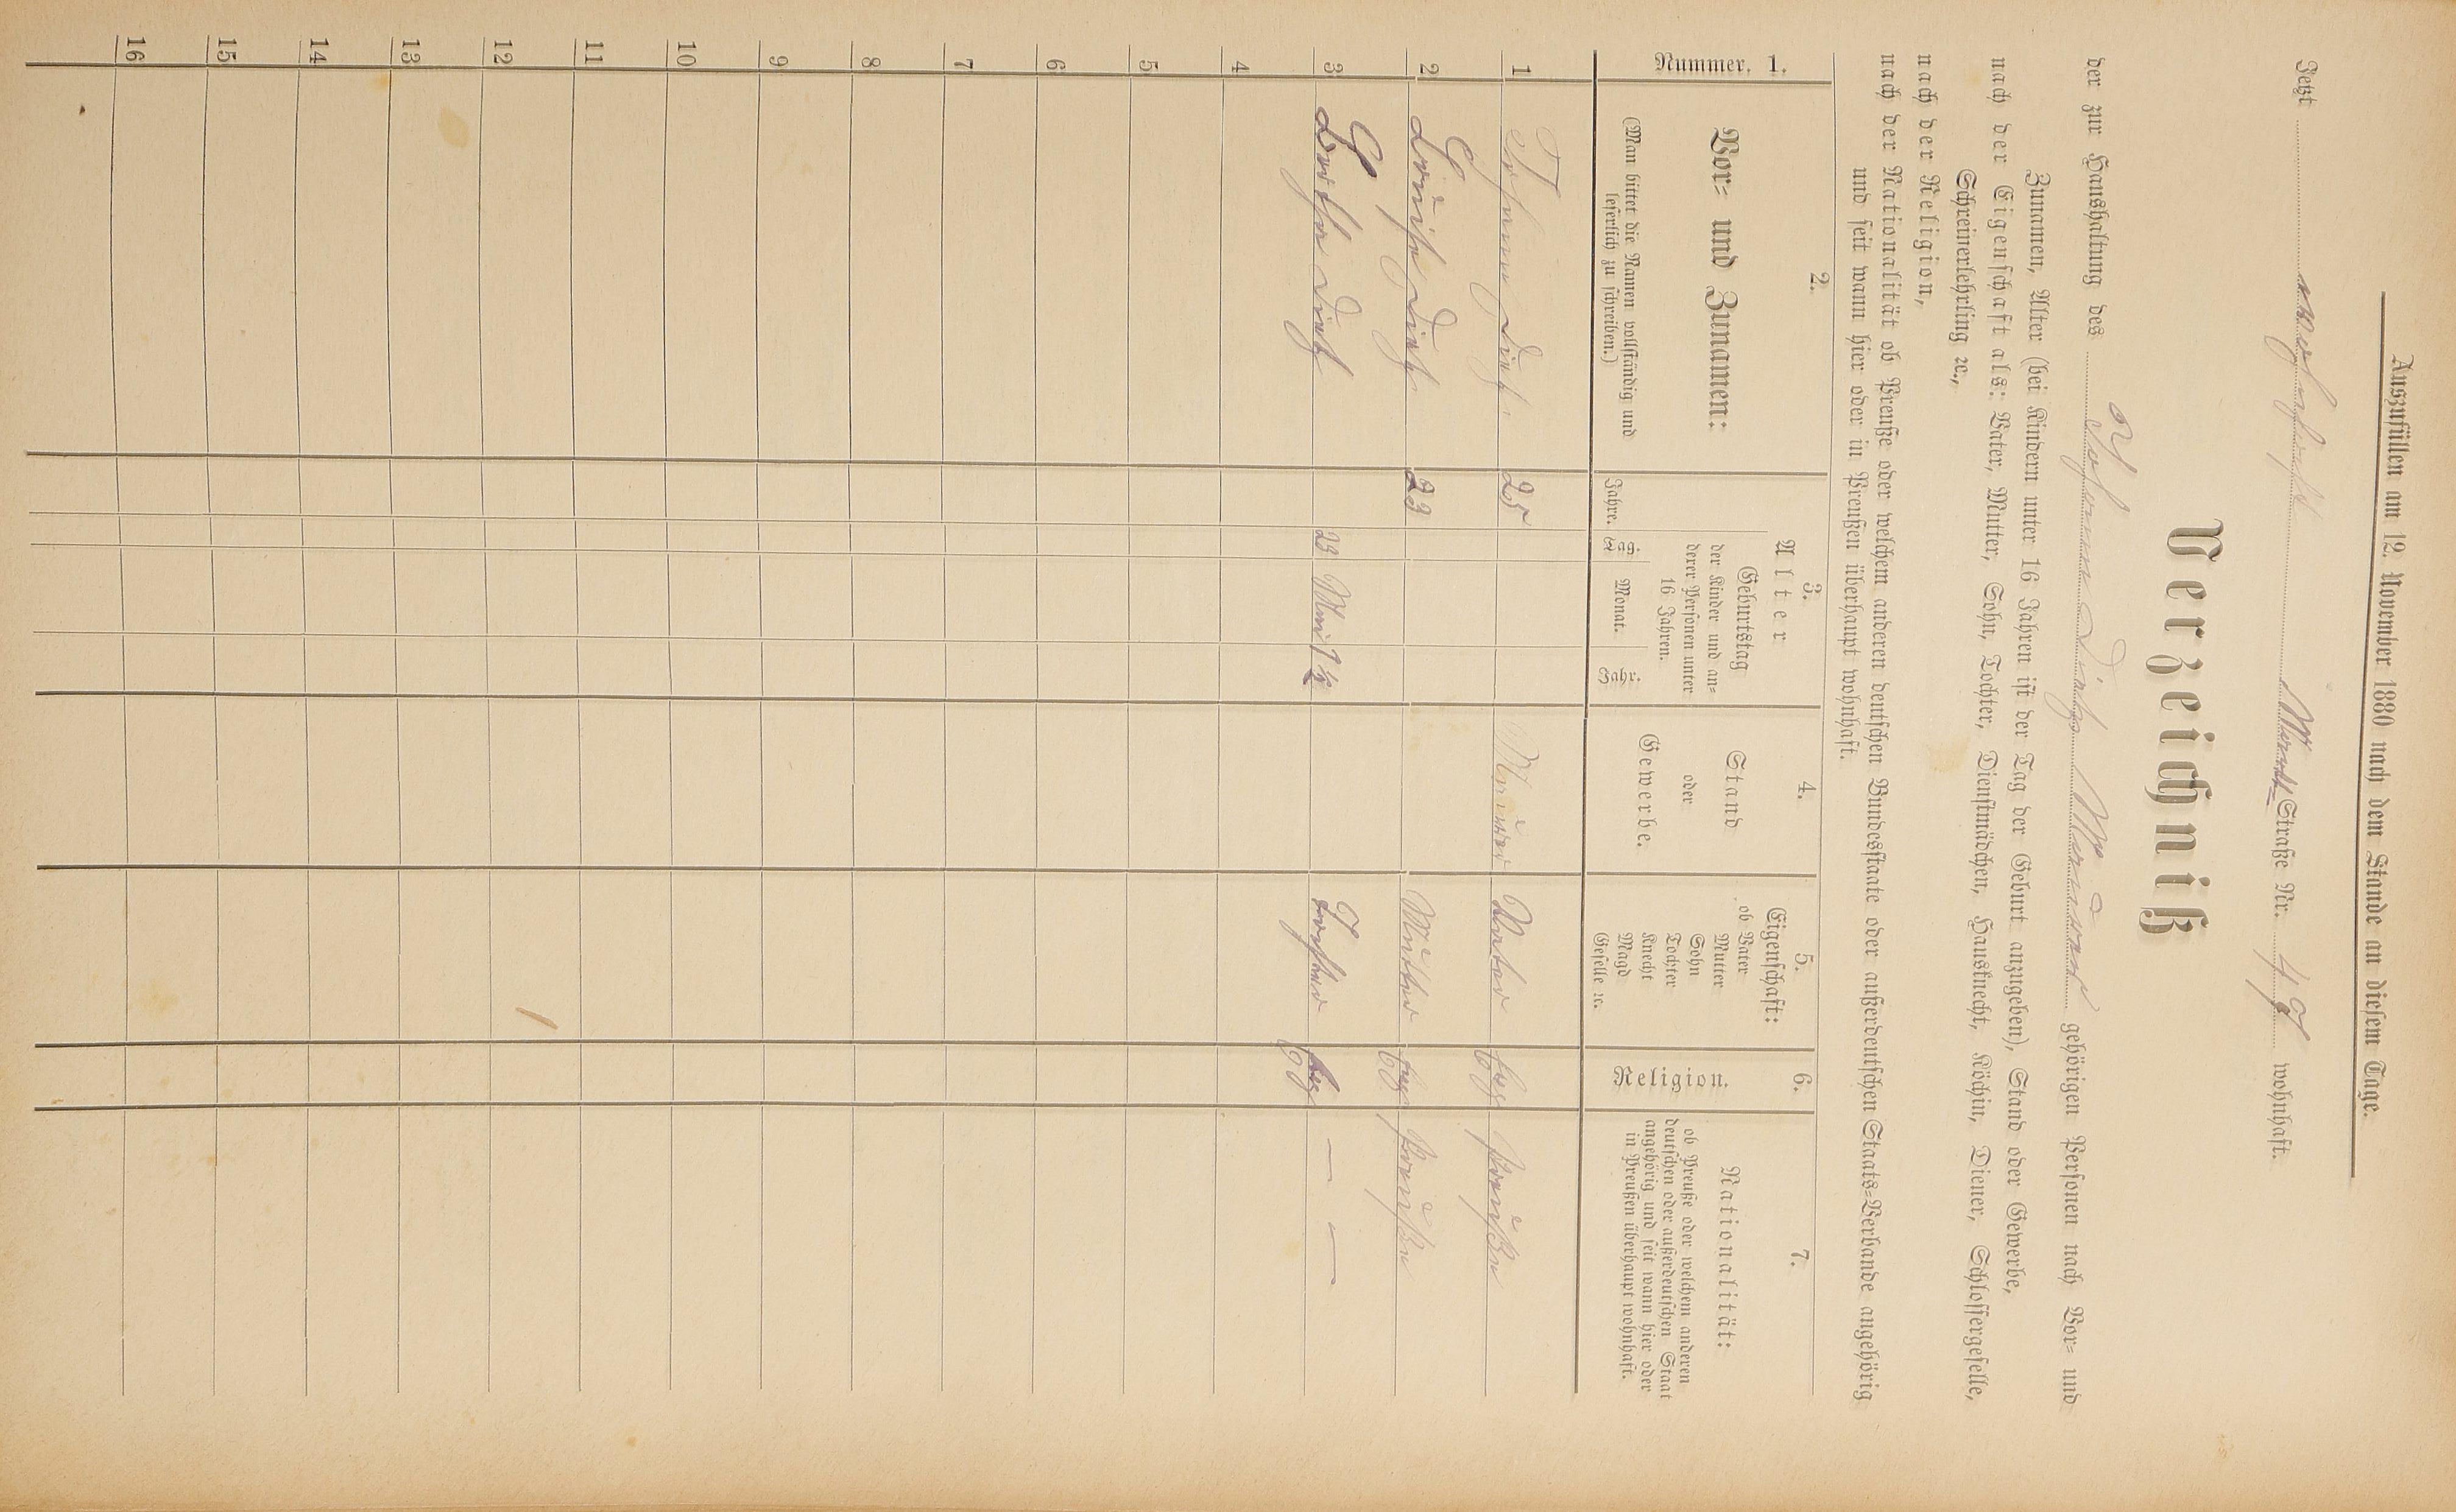 Auszufüllen am 12. November 1880 nach dem Stande an diesem Tage.
Jetzt wohnhaft Straße Nr. 49 wohnhaft.
Verzeichniß
der zur Haushaltung des Johann Dietz Maurer gehörigen Personen nach Vor- und
Zunamen, Alter (bei Kindern unter 16 Jahren ist der Tag der Geburt anzugeben), Stand oder Gewerbe,
nach der Eigenschaft als: Vater, Mutter, Sohn, Tochter, Dienstmädchen, Hausknecht, Köchin, Diener, Schlossergeselle,
Schreinerlehrling ꝛc.,
nach der Religion,
nach der Nationalität ob Preuße oder welchem anderen deutschen Bundesstaate oder außerdeutschen Staats-Verbande angehörig
und seit wann hier oder in Preußen überhaupt wohnhaft.
1.
Nummer.
2.
Vor- und Zunamen:
(Man bittet die Namen vollständig und
leserlich zu schreiben.)
3.
Alter
Jahre.
Geburtstag
der Kinder und an-
derer Personen unter
16 Jahren.
Tag. Monat. Jahr.
4.
Stand
oder
Gewerbe.
5.
Eigenschaft:
ob Vater
Mutter
Sohn
Tochter
Knecht
Magd
Geselle ꝛc.
6.
Religion.
7.
Nationalität:
ob Preuße oder welchem anderen
deutschen oder außerdeutschen Staat
angehörig und seit wann hier oder
in Preußen überhaupt wohnhaft.
1 Johann Dietz 25 Maurer Vater evg Preußen
2 Louise Dietz 23 Mutter evg Preußen
3 Dietz 23 Mai 1½ Tochter evg — —
4
5
6
7
8
9
10
11
12
13
14
15
16